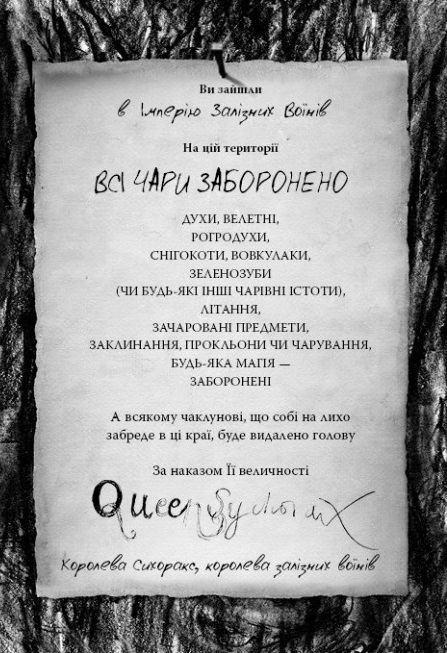 Ви зайшли
в Імперію Залізних Воїнів
На цій території
ВСІ ЧАРИ ЗАБОРОНЕНО
ДУХИ, ВЕЛЕТНІ,
РОГРОДУХИ,
СНІГОКОТИ, ВОВКУЛАКИ,
ЗЕЛЕНОЗУБИ
(ЧИ БУДЬ-ЯКІ ІНШІ ЧАРІВНІ ІСТОТИ),
ЛІТАННЯ,
ЗАЧАРОВАНІ ПРЕДМЕТИ,
ЗАКЛИНАННЯ, ПРОКЛЬОНИ ЧИ ЧАРУВАННЯ,
БУДЬ-ЯКА МАГІЯ —
ЗАБОРОНЕНІ
А всякому чаклунові, що собі на лихо
забреде в ці краї, буде видалено голову
За наказом Її величності
Queen
Королева Сихоракс, королева залізних воїнів